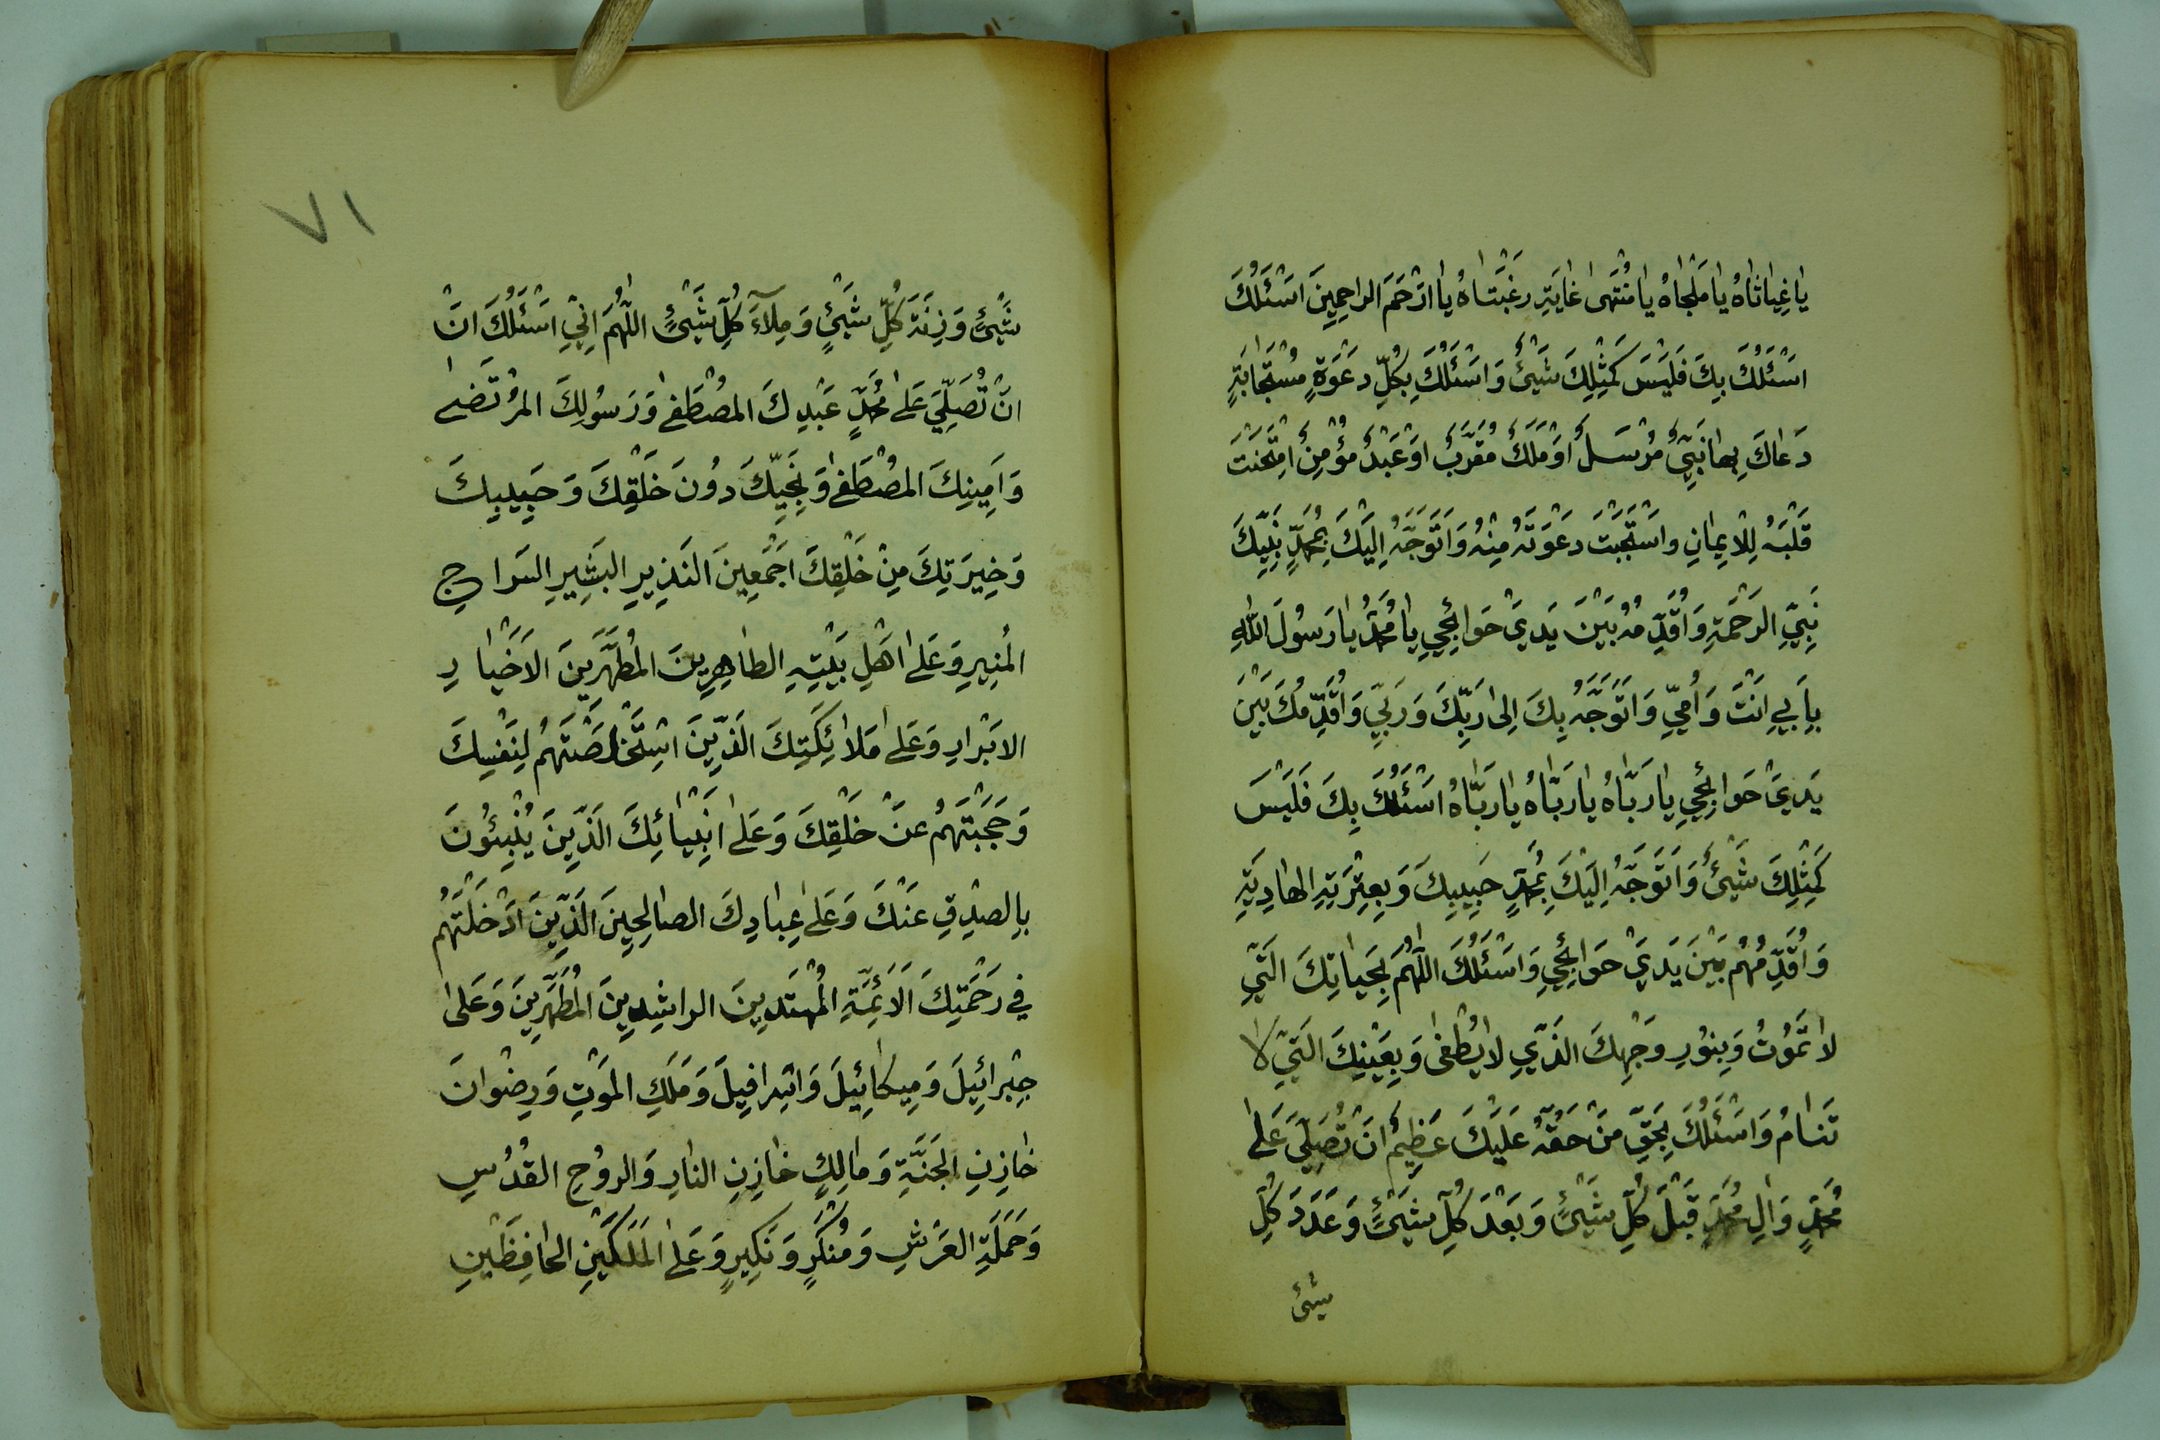 يٰا غِيٰاثٰاهُ يٰا مَلْجٰاهُ يٰا مُنْتَهىٰ غٰايَةِ رَغْبَتٰاهُ يٰا اَرْحَمَ الراحِمِينَ اَسْئَلُكَ
اَسْئَلُكَ بِكَ فَلَيْسَ كَمِثْلِكَ شَيْئٌ وَاَسْئَلُكَ بِكُلِّ دَعْوَةٍ مُسْتَجٰابَةٍ
دَعٰاكَ بِهٰا نَبِيٌّ مُرْسَلٌ اَوْ مَلَكٌ مُقَرَّبٌ اَوْ عَبْدٌ مُؤْمِنٌ اِمْتَحَنْتَ
قَلْبَهُ لِلْاِيمٰانِ وَاسْتَجَبْتَ دَعْوَتَهُ مِنْهُ وَاَتَوَجَّهُ اِلَيْكَ بِمُحَمَّدٍ نَبِيِّكَ
نَبِيِّ الرَحْمَةِ وَاُقَدِّمُهُ بَيْنَ يَدَيْ حَوائِجِي يٰا مُحَمَّدُ يٰا رَسُولَ اللهِ
بِاَبِي اَنْتَ وَاُمِّي وَاَتَوَجَّهُ بِكَ اِلىٰ رَبِّكَ وَرَبِّي وَاُقَدِّمُكَ بَيْنَ
يَدَيْ حَوائِجِي يٰا رَبّٰاهُ يٰا رَبّٰاهُ يٰا رَبّٰاهُ اَسْئَلُكَ بِكَ فَلَيْسَ
كَمِثْلِكَ شَيْئٌ وَاَتَوَجَّهُ اِلَيْكَ بِمُحَمَّدٍ حَبِيبِكَ وَبِعِتْرَتِهِ الهٰادِيَةِ
وَاُقَدِّمُهُمْ بَيْنَ يَدَيْ حَوائِجِي وَاَسْئَلُكَ اللّٰهُمَّ بِحَيٰاتِكَ الَتِّي
لاٰ تَمُوتُ وَبِنُورِ وَجْهِكَ الَذِّي لاٰ يُطْفٰى وَبِعَيْنِكَ الَتِّي لاٰ
تَنٰامُ وَاَسْئَلُكَ بِحَقِّ مَنْ حَقُّهُ عَلَيْكَ عَظِيمٌ اَنْ تُصَلِّيَ عَلىٰ
مُحَمَّدٍ وَاٰلِ مُحَمَّدٍ قَبْلَ كُلِّ شَيْئٍ وَبَعْدَ كُلِّ شَيْئٍ وَعَدَدَ كُلِّ
شيئ
٧١
شَيْئٍ وَزِنَةَ كُلِّ شَيْئٍ وَمِلاَءَ كُلِّ شَيْئٍ اللّٰهُمَّ اِنِّي اَسْئَلُكَ اَنْ
اَنْ تُصَلِّيَ عَلىٰ مُحَمَّدٍ عَبْدِكَ المُصْطَفىٰ وَرَسُولِكَ المُرْتَضىٰ
وَاَمِينِكَ المُصْطَفىٰ وَنَجِيِّكَ دُونَ خَلْقِكَ وَحَبِيبِكَ
وَخِيَرَتِكَ مِنْ خَلْقِكَ اَجْمَعِينَ النَذِيرِ البَشِيرِ السَراجِ
المُنِيرِ وَعَلىٰ اَهْلِ بَيْتِهِ الطٰاهِرِينَ المُطَهَّرِينَ الاَخْيٰارِ
الاَبْرٰارِ وَعَلىٰ مَلاٰئِكَتِكَ الَذِّينَ اسْتَخْلَصْتَهُمْ لِنَفْسِكَ
وَحَجَبْتَهُمْ عَنْ خَلْقِكَ وَعَلىٰ اَنْبِيٰائِكَ الَذِّينَ يُنْبِئُونَ
بِالصِدْقِ عَنْكَ وَعَلىٰ عِبٰادِكَ الصٰالِحِينَ الَذِّينَ اَدْخَلْتَهُمْ
فِي رَحْمَتِكَ الاَئِمَّةِ المُهْتَدِينَ الراشِدِينَ المُطَهَّرِينَ وَعَلىٰ
جِبْرائِيلَ وَمِيكٰائِيلَ وَاسْرافِيلَ وَمَلَكِ المَوْتِ وَرِضْوانَ
خٰازِنِ الجَنَّةِ وَمٰالِكٍ خٰازِنِ النٰارِ وَالرُوحِ القُدُسِ
وَحَمَلَةِ العَرْشِ وَمُنْكَرٍ وَنَكِيرٍ وَعَلىٰ المَلَكَيْنِ الحٰافِظَيْنِ